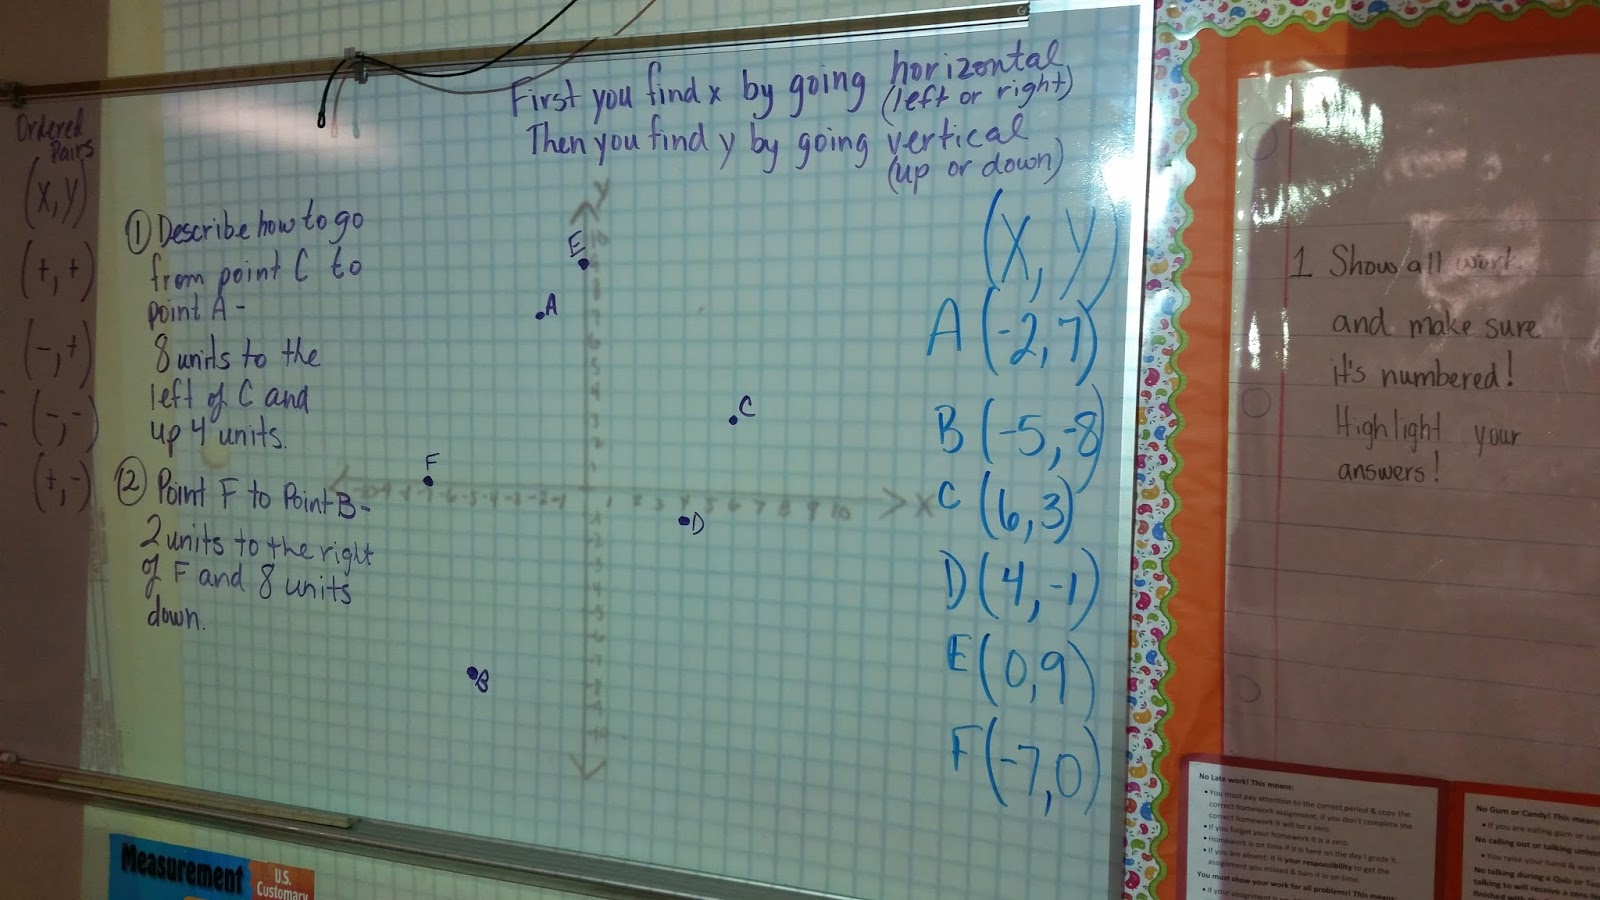 Ordered
Pairs
(x, y)
(+, +)
(-, +)
(-, -)
(+, -)
First you find x by going horizontal
(left or right)
Then you find y by going vertical
(up or down)
① Describe how to go
from point C to
point A -
8 units to the
left of C and
up 4 units.
② Point F to Point B -
2 units to the right
of F and 8 units
down.
y
E
A
C
F
D
B
x
1 2 3 4 5 6 7 8 9 10
(X, Y)
A (-2, 7)
B (-5, -8)
C (6, 3)
D (4, -1)
E (0, 9)
F (-7, 0)
1 Show all work
and make sure
it's numbered!
Highlight your
answers!
Measurement
U.S.
Customary
No Late work! This means:
• You must pay attention to the correct period & copy the
correct homework assignment, if you don't complete the
correct homework it will be a zero.
• If you forget your homework it is a zero.
• Homework is on time if it is here on the day I grade it.
• If you are absent: it is your responsibility to get the
assignment you missed & turn it in on time.
You must show your work for all problems! This means:
No Gum or Candy! This means
• If you are eating gum or
No calling out or talking
• You raise your hand &
No talking during a Quiz or
talking to will receive a zero.
finished with